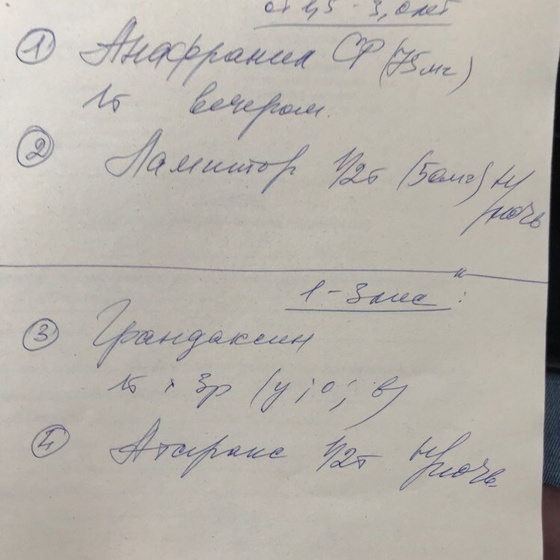 от 1,5 - 3,0 лет
① Анафранил СР (75мг)
1т вечером.
② Ламитор 1/2т (50мг) н/ночь
"1-3 мес":
③ Грандаксин
1т x 3р (у; о; в)
④ Атаракс 1/2т н/ночь